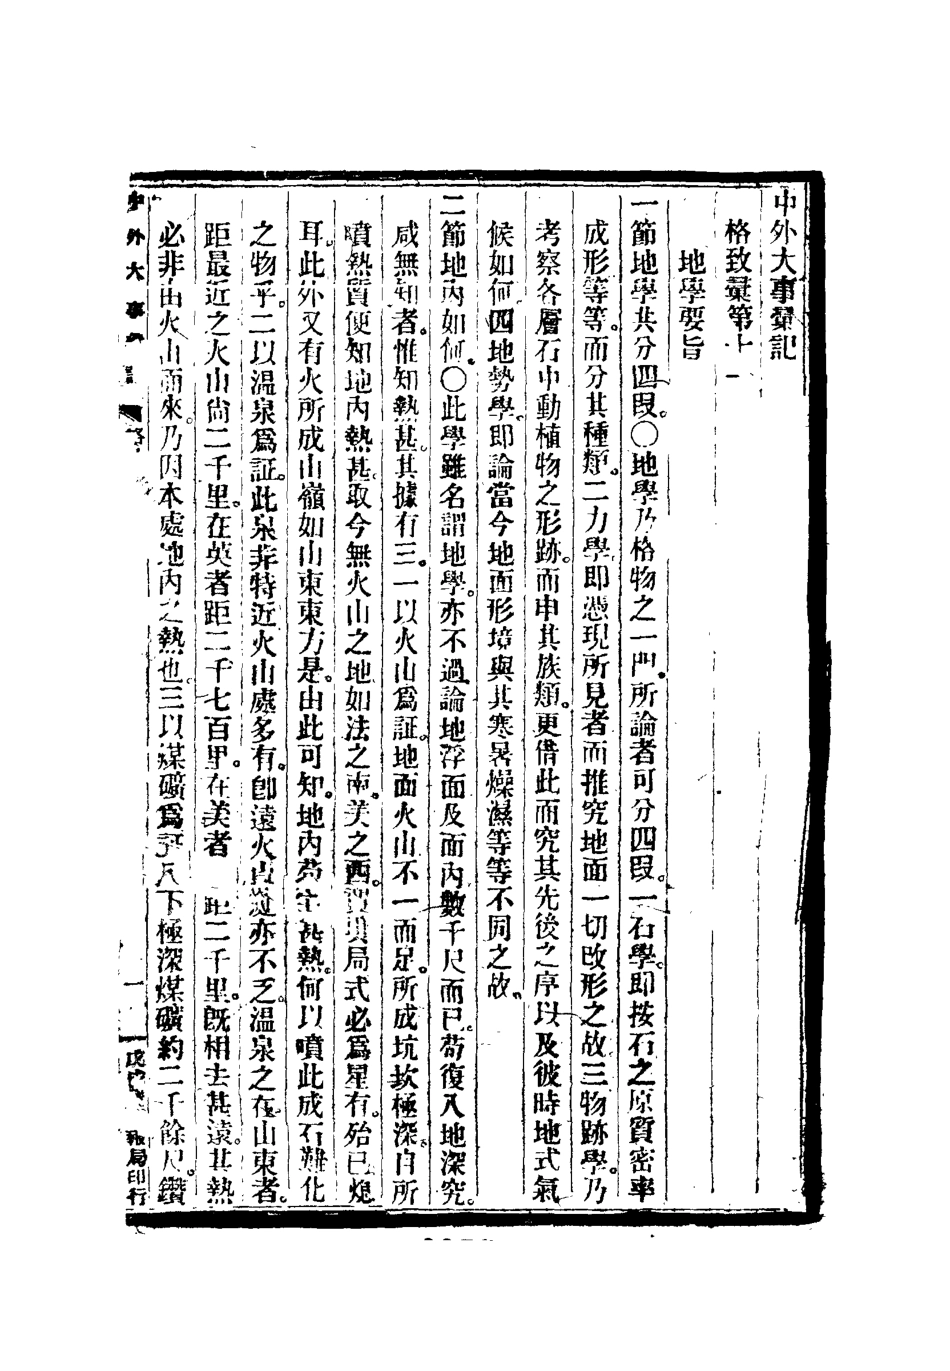 中外大事彙記
格致彙第十一
地學要旨
一節地學共分四段。〇地學乃格物之一門。所論者可分四段。一石學。即按石之原質密率
成形等等。而分其種類。二力學即憑現所見者而推究地面一切改形之故。三物跡學。乃
考察各層石中動植物之形跡。而申其族類。更借此而究其先後之序以及彼時地式氣
候如何。四地勢學。即論當今地面形境與其寒暑燥濕等等不同之故。
二節地內如何。〇此學雖名謂地學。亦不過論地浮面及面內數千尺而已。苟復入地深究。
咸無知者。惟知熱甚。其據有三。一以火山為証。地面火山不一而足。所成坑坎極深。自所
噴熱質便知地內熱甚。取今無火山之地如法之南。美之西。局式必為星有。殆已熄
耳。此外又有火所成山嶺如山東東方是。由此可知。地內甚熱。何以噴此成石難化
之物乎。二以溫泉為証。此泉非特近火山處多有。卽遠火亦不乏。溫泉之在山東者。
距最近之火山尚二千里。在英者距二千七百里。在美者距二千里。旣相去甚遠。其熱
必非由火山而來。乃因本處地內之熱也。三以煤礦為下極深煤礦約二千餘尺。鑽
中外大事
報局印行